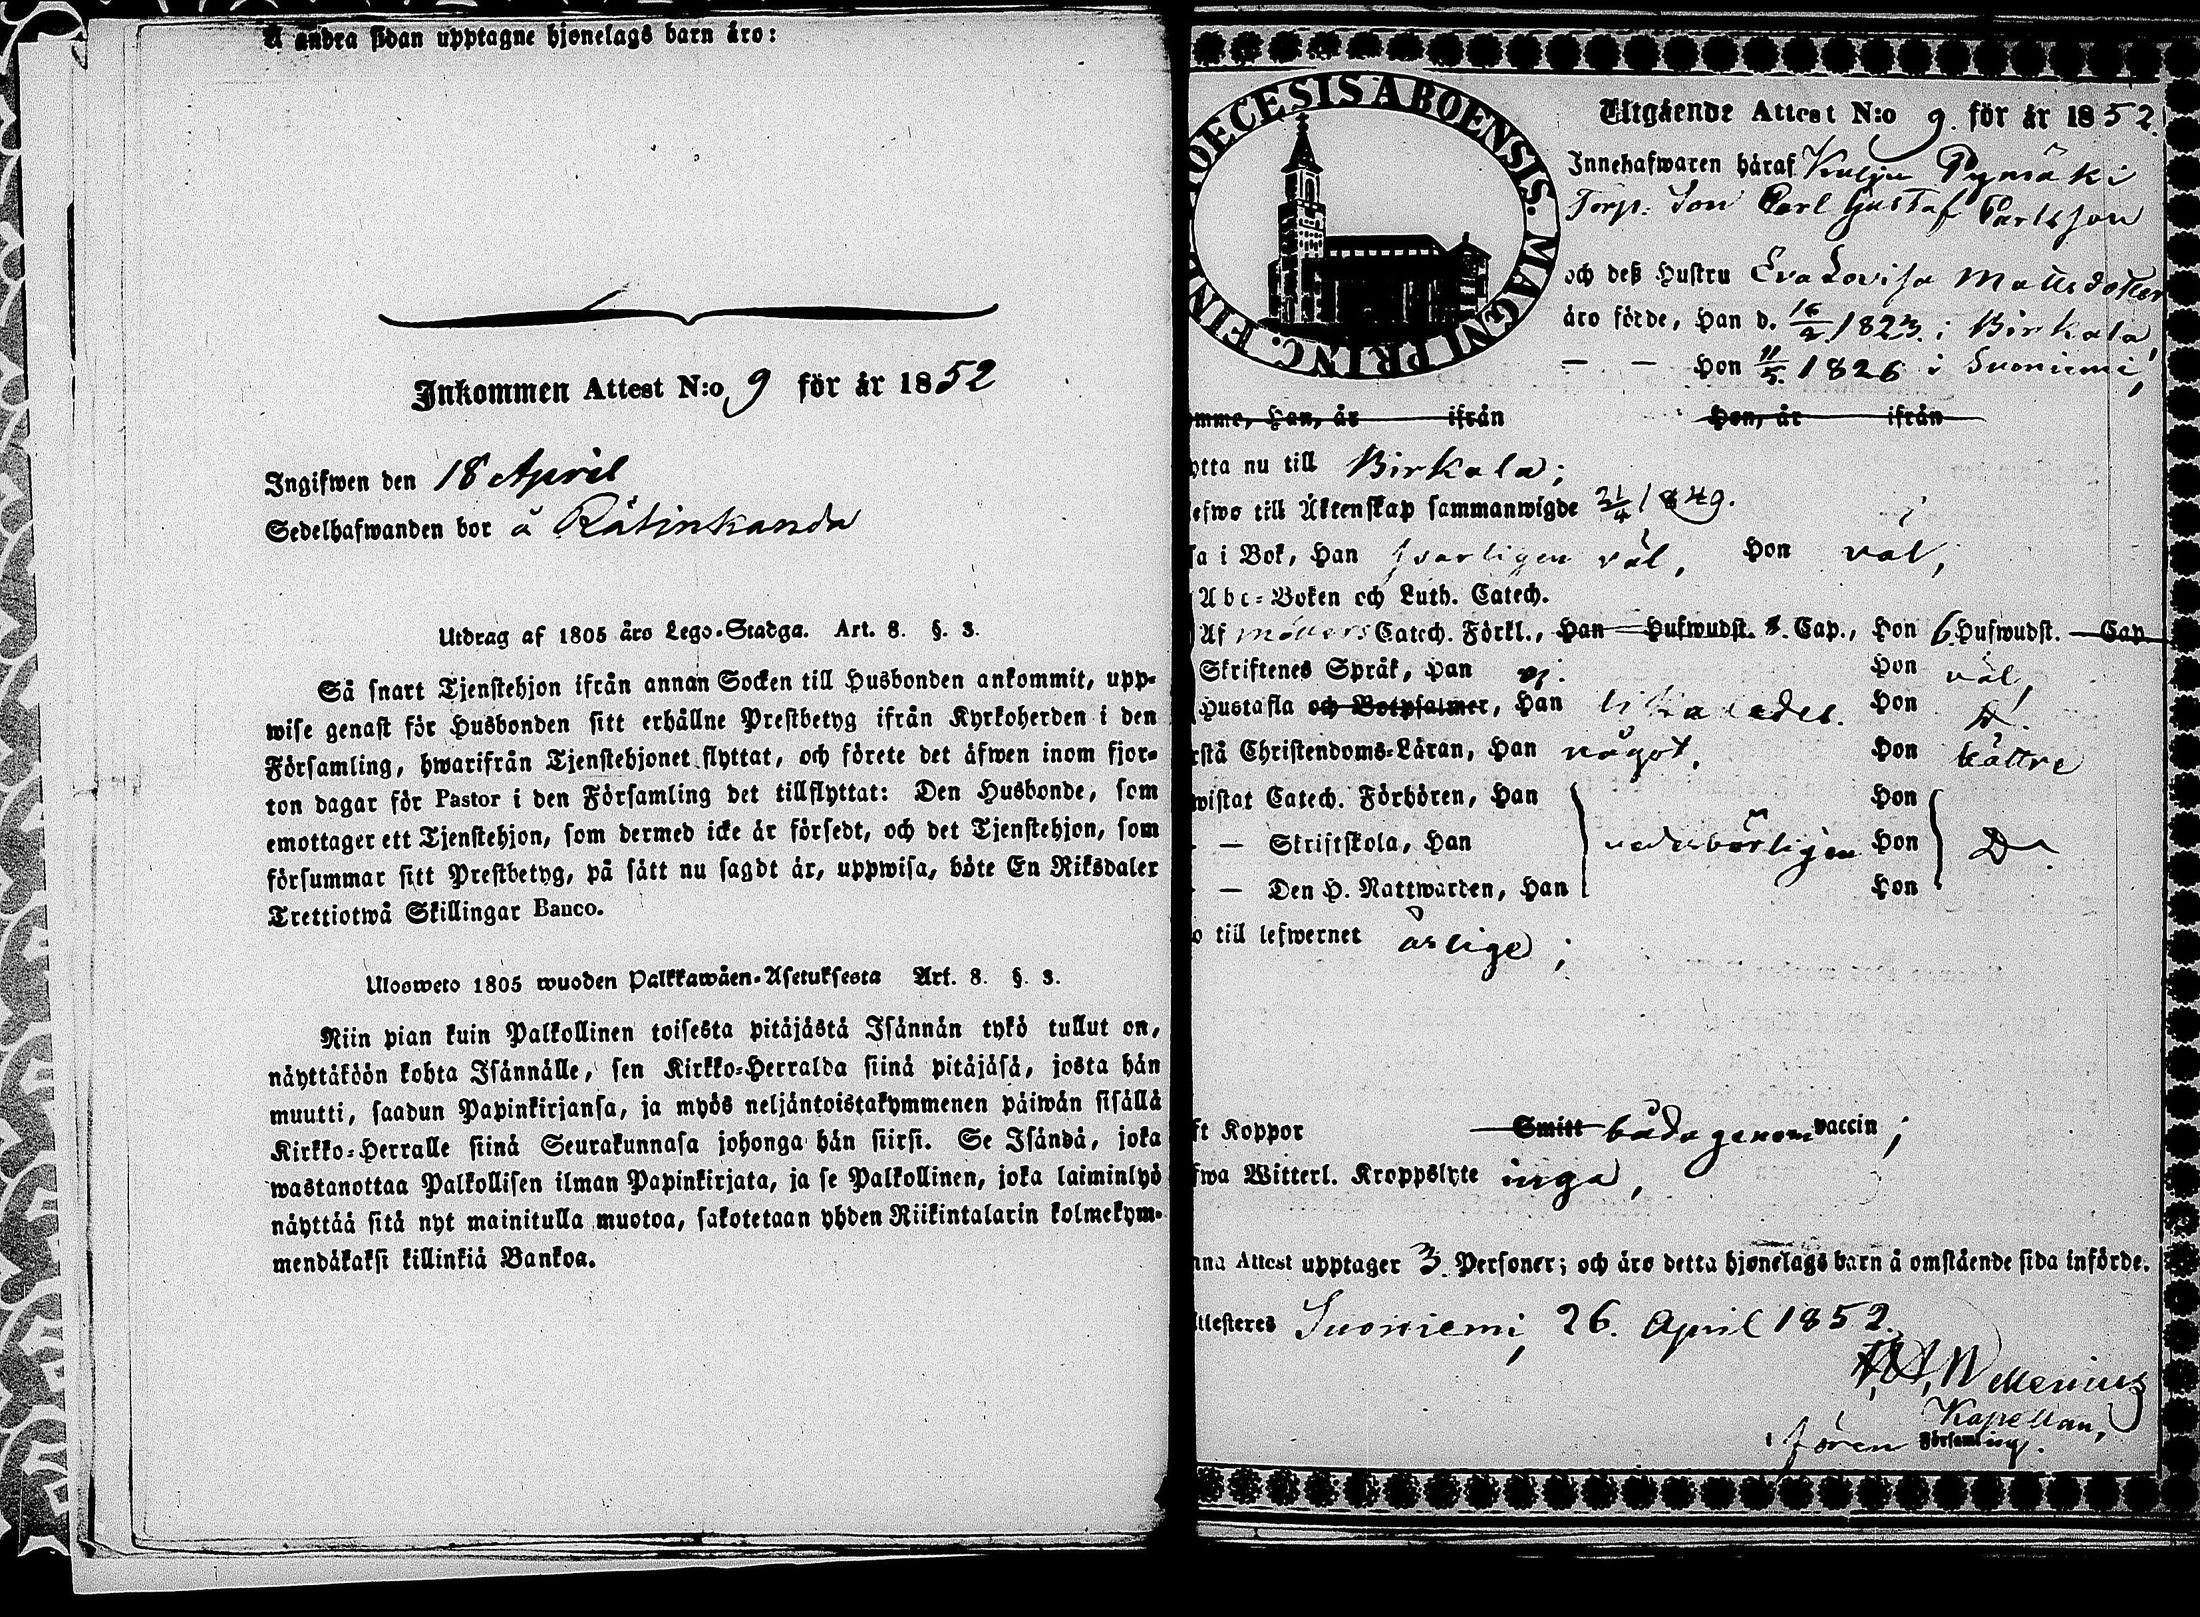 Å andra sidan upptagne hjonelags barn äro:
Inkommen Attest N:o 9 för år 1852
Ingifwen den 18 April
Sedelhafwanden bor å Rätinkanda
Utdrag af 1805 års Lego-Stadga. Art. 8. §. 3.
Så snart Tjenstehjon ifrån annan Socken till Husbonden ankommit, upp-
wise genast för Husbonden sitt erhållne Prestbetyg ifrån Kyrkoherden i den
Församling, hwarifrån Tjenstehjonet flyttat, och förete det äfwen inom fjor-
ton dagar för Pastor i den Församling det tillflyttat: Den Husbonde, som
emottager ett Tjenstehjon, som dermed icke är försedt, och det Tjenstehjon, som
försummar sitt Prestbetyg, på sätt nu sagdt är, uppwisa, böte En Riksdaler
Trettiotwå Skillingar Banco.
Ulosweto 1805 wuoden Palkkawäen-Asetuksesta Art. 8. §. 3.
Niin pian kuin Palkollinen toisesta pitäjästä Isännän tykö tullut on,
näyttäköön kohta Isännälle, sen Kirkko-Herralda siinä pitäjäsä, josta hän
muutti, saadun Papinkirjansa, ja myös neljäntoistakymmenen päiwän sisällä
Kirkko-Herralle siinä Seurakunnasa johonga hän siirsi. Se Isändä, joka
wastanottaa Palkollisen ilman Papinkirjata, ja se Palkollinen, joka laiminlyö
näyttää sitä nyt mainitulla muotoa, sakotetaan yhden Riikintalarin kolmekym-
mendäkaksi killinkiä Bankoa.
DIOECESIS ABOENSIS. MAGNI PRINC. FIN
Utgående Attest N:o 9. för år 1852.
Innehafwaren häraf Kulju Pynäki
Torp. Son Carl Gustaf Carlsson
och deß Hustru Eva Lovisa Mattsdotter
äro förde, Han d. 16/2 1823. i Birkala,
— — Hon 11/5. 1826 i Suoniemi,
omme, Han, år ifrån Hon, år ifrån
ytta nu till Birkala;
efwo till Äktenskap sammanwigde 21/4 1849.
sa i Bok, Han svarligen väl, Hon väl,
Abc-Boken och Luth. Catech.
Af Möllers Catech. Förkl., Han Hufwudst. 8. Cap., Hon 6. Hufwudst. Cap.
Skriftenes Språk, Han ej. Hon väl,
Hustafla och Botpsalmer, Han likaledes. Hon D:o.
rstå Christendoms-Läran, Han något. Hon bättre
wistat Catech. Förhören, Han Hon
- — Skriftskola, Han vederbörligen Hon D:o
- — Den H. Nattwarden, Han Hon
o till lefwernet ärlige;
ft Koppor Smitt båda genom vaccin;
fwa Witterl. Kroppslyte inga,
nna Attest upptager 3. Personer; och äro detta hjonelags barn å omstående sida införde.
ttesteres Suoniemi, 26. April 1852.
Kapellan,
i fören Församling.